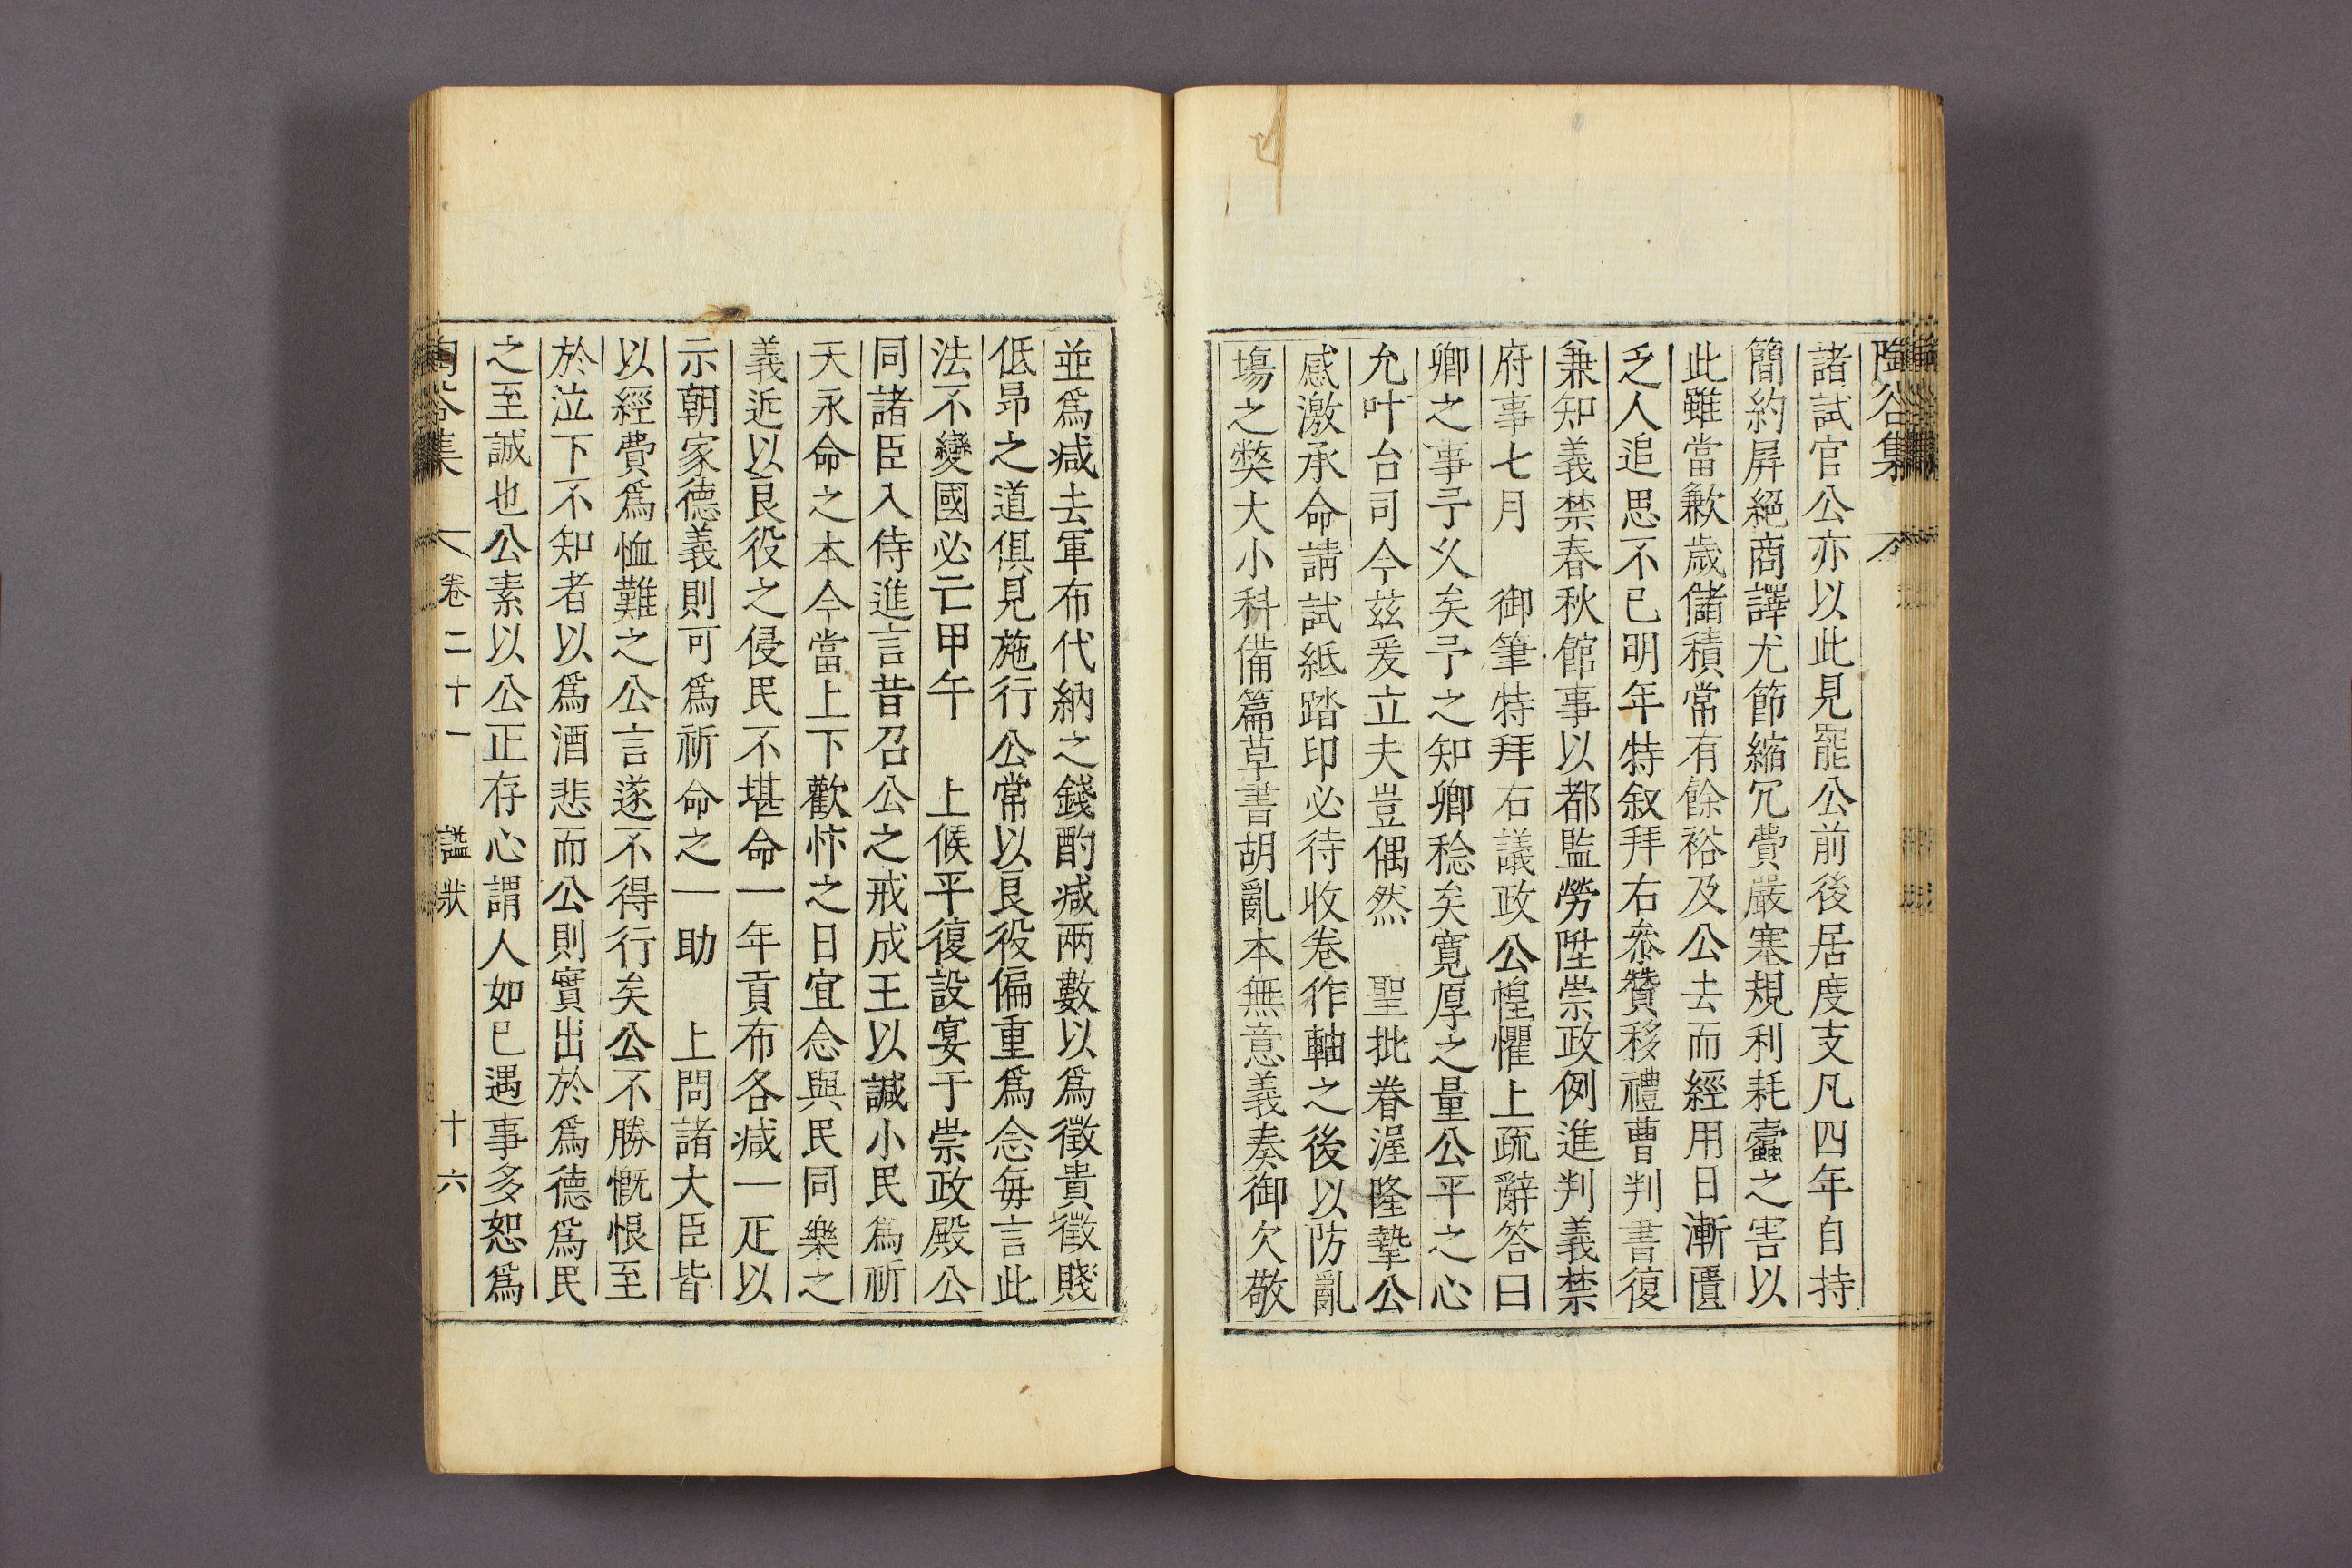 陶谷集
諸試官公亦以此見罷公前後居度支凡四年自持
簡約屛絕商譯尤節縮冗費嚴塞規利耗蠹之害以
此雖當歉歲儲積常有餘裕及公去而經用日漸匱
乏人追思不已明年特叙拜右叅贊移禮曹判書復
兼知義禁春秋館事以都監勞陞崇政例進判義禁
府事七月　御筆特拜右議政公惶懼上疏辭答曰
卿之事予乆矣予之知卿稔矣寬厚之量公平之心
允叶台司今玆爰立夫豈偶然　聖批眷渥隆摯公
感激承命請試紙踏印必待收卷作軸之後以防亂
塲之獘大小科備篇草書胡亂本無意義奏御欠敬
並爲减去軍布代納之錢酌减兩數以爲徵貴徵賤
低昻之道俱見施行公常以良役偏重爲念每言此
法不變國必亡甲午　上候平復設宴于崇政殿公
同諸臣入侍進言昔召公之戒成王以諴小民爲祈
天永命之本今當上下歡忭之日宜念與民同樂之
義近以良役之侵民不堪命一年貢布各减一疋以
示朝家德義則可爲祈命之一助　上問諸大臣皆
以經費爲恤難之公言遂不得行矣公不勝慨恨至
於泣下不知者以爲酒悲而公則實出於爲德爲民
之至誠也公素以公正存心謂人如已遇事多恕爲
陶谷集　卷二十一　諡狀　十六